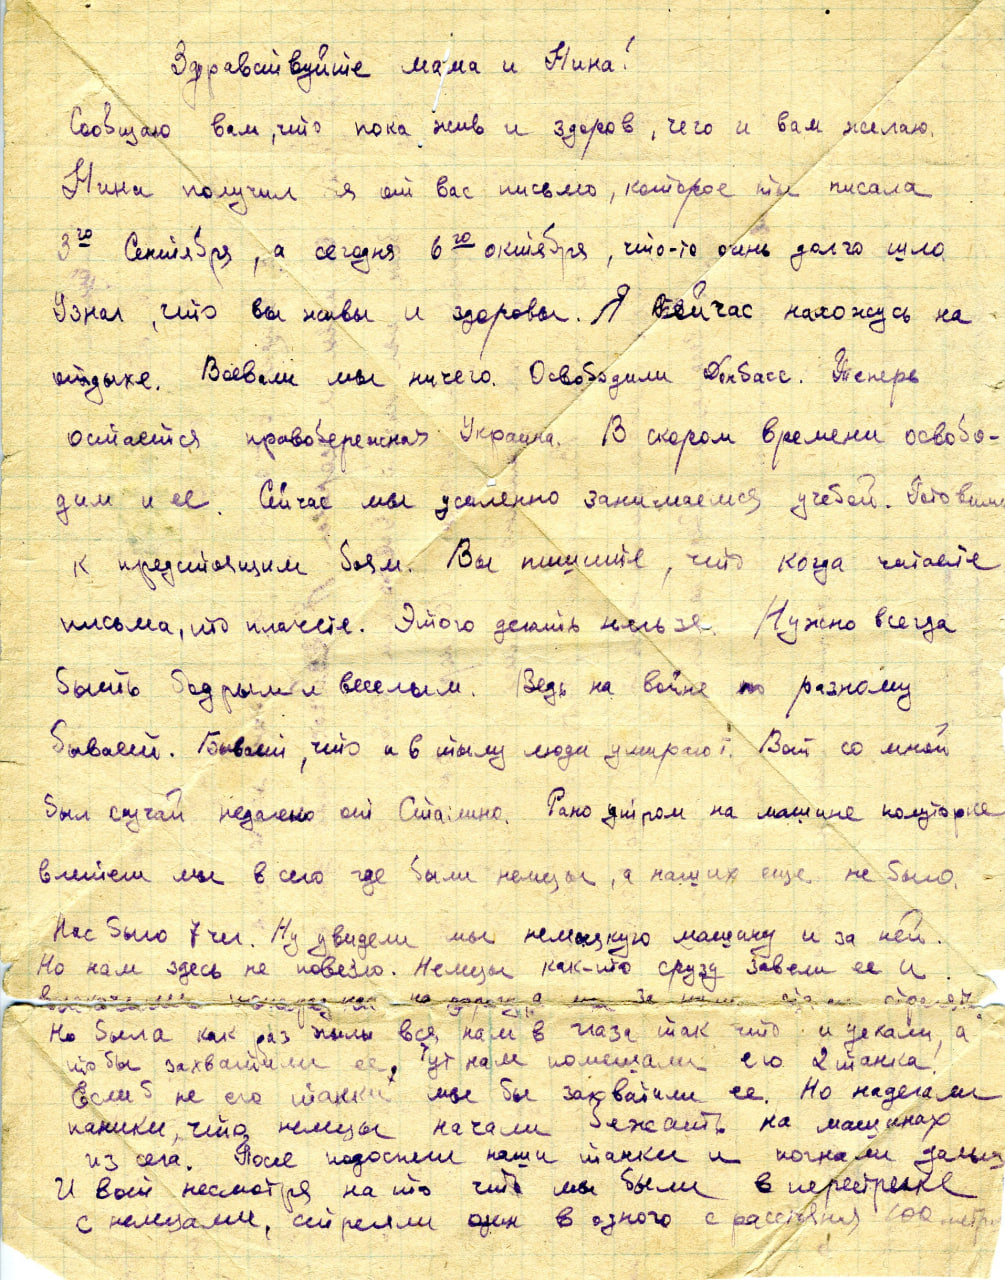 Здравствуйте мама и Нина!
Сообщаю вам, что пока жив и здоров, чего и вам желаю.
Нина получил я от вас письмо, которое ты писала
3го Сентября, а сегодня 6го октября, что-то очень долго шло
Узнал, что вы живы и здоровы. Я сейчас нахожусь на
отдыхе. Воевали мы ничего. Освободили Донбасс. Теперь
остается правобережная Украина. В скором времени освобо-
дим и ее. Сейчас мы усиленно занимаемся учебой. Готовимся
к предстоящим боям. Вы пишите, что когда читаете
письма, то плачете. Этого делать нельзя. Нужно всегда
быть бодрым и веселым. Ведь на войне по разному
бывает. Бывает, что и в тылу люди умирают. Вот со мной
был случай недалеко от Сталино. Рано утром на машине полуторке
влетели мы в село где были немцы, а наших еще не было.
Нас было 7 чел. Ну увидели мы немецкую машину и за ней.
Но нам здесь не повезло. Немцы как-то сразу завели ее и
на дорогу, а за
Но была как раз пыль вся нам в глаза так что и уехали, а
чтобы захватили ее, тут нам помешали его 2 танка!
Если б не его танки мы бы захватили ее. Но наделали
паники, что немцы начали бежать на машинах
из села. После подоспели наши танки и погнали дальше
И вот несмотря на то что мы были в перестрелке
с немцами, стреляли один в одного с расстояния 100 метров